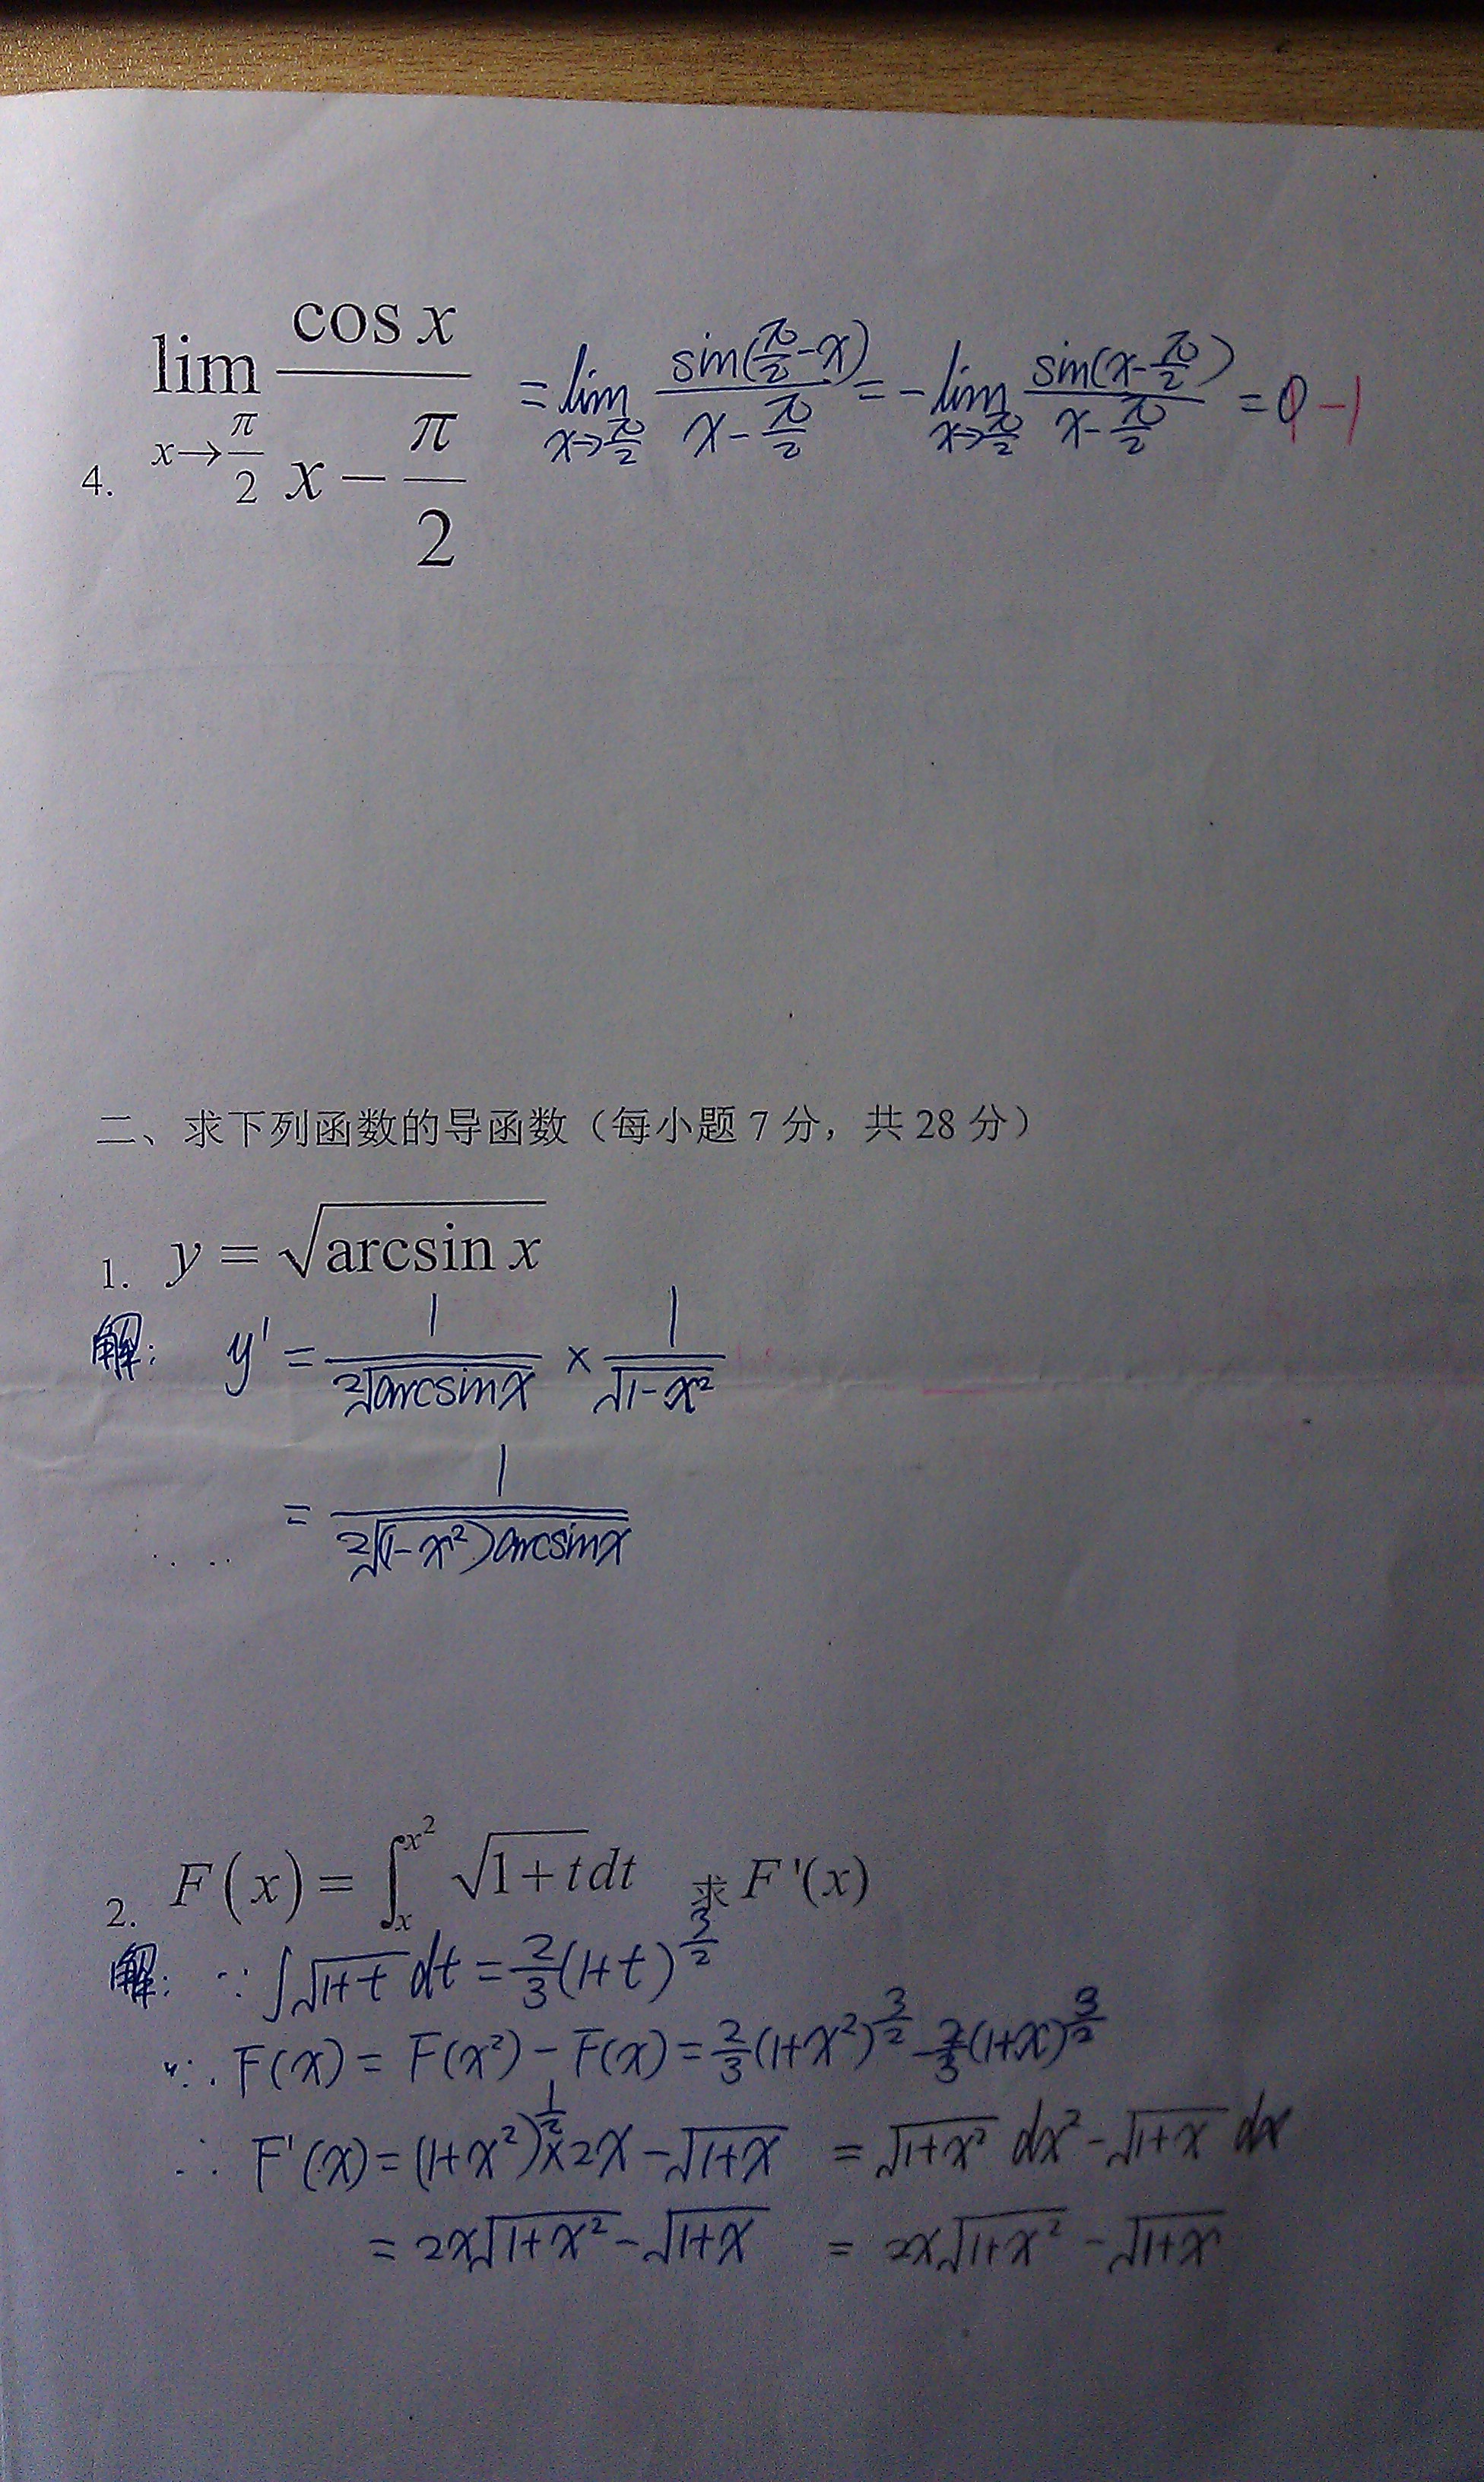 4. lim x→π/2 cos x / (x − π/2) = lim x→π/2 sin(π/2 − x) / (x − π/2) = − lim x→π/2 sin(x − π/2) / (x − π/2) = 0 −1
二、求下列函数的导函数（每小题 7 分，共 28 分）
1. y = √(arcsin x)
解: y' = 1/(2√(arcsinx)) × 1/√(1−x²)
= 1/(2√((1−x²)arcsinx))
2. F(x) = ∫_x^{x²} √(1+t) dt 求 F'(x)
解: ∵ ∫√(1+t) dt = 2/3 (1+t)^{3/2}
∵ F(x) = F(x²) − F(x) = 2/3 (1+x²)^{3/2} − 2/3 (1+x)^{3/2}
∴ F'(x) = (1+x²)^{1/2} × 2x − √(1+x) = √(1+x²) dx² − √(1+x) dx
= 2x√(1+x²) − √(1+x) = 2x√(1+x²) − √(1+x)